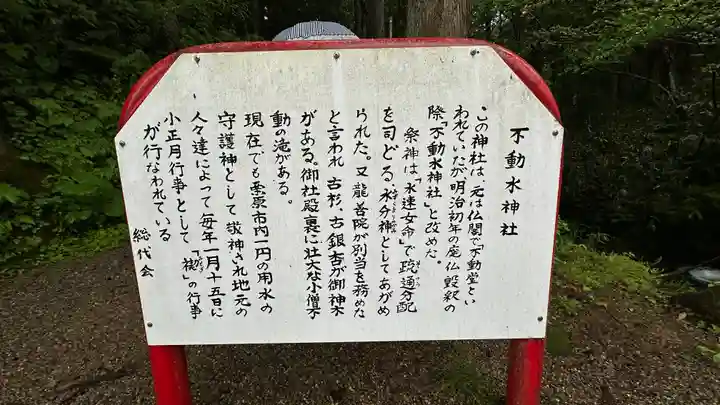 不動水神社
この神社は、元は仏閣で「不動堂とい
われていたが明治初年の廃仏毀釈の
際「不動水神社」と改めた。
祭神は、「水速女命」で疏通分配
を司どる水分神としてあがめ
られた。又龍善院が別当を務めた
と言われ古杉、古銀杏が御神木
がある。御社殿裏に壮大な小僧不
動の滝がある。
現在でも栗原市内一円の用水の
守護神として敬神され地元の
人々達によって毎年一月十五日に
小正月行事として「裸」の行事
が行なわれている
総代会